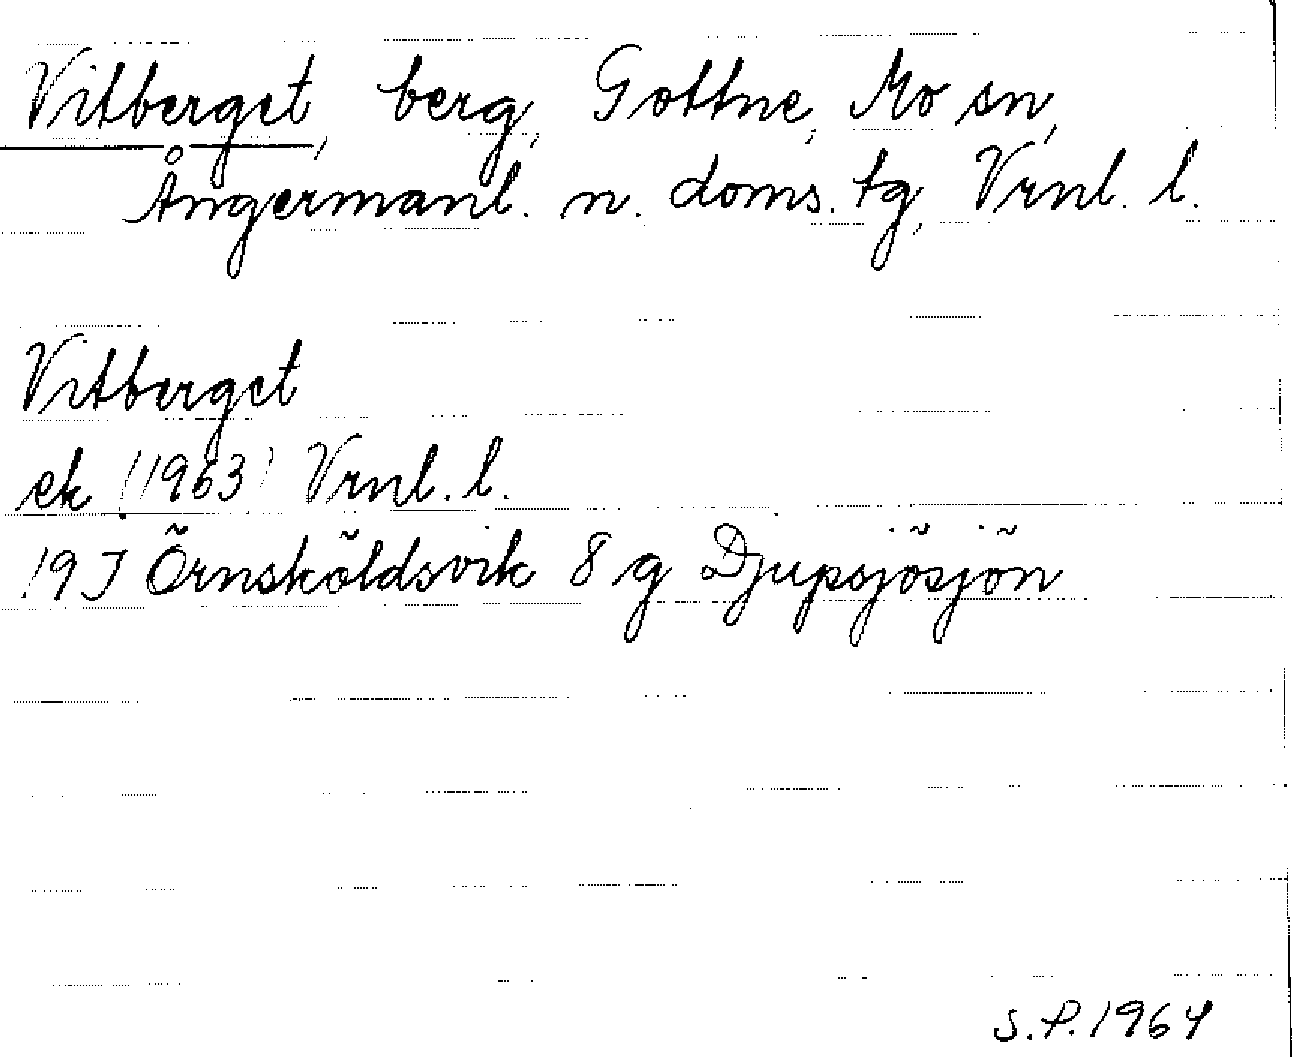 Vitberget, berg, Gottne, Mo sn,
Ångermanl. n. doms. tg, Vrnl. l.
Vitberget
ek (1963) Vrnl. l.
19 J Örnsköldsvik 8 g Djupsjösjön
S.P. 1964